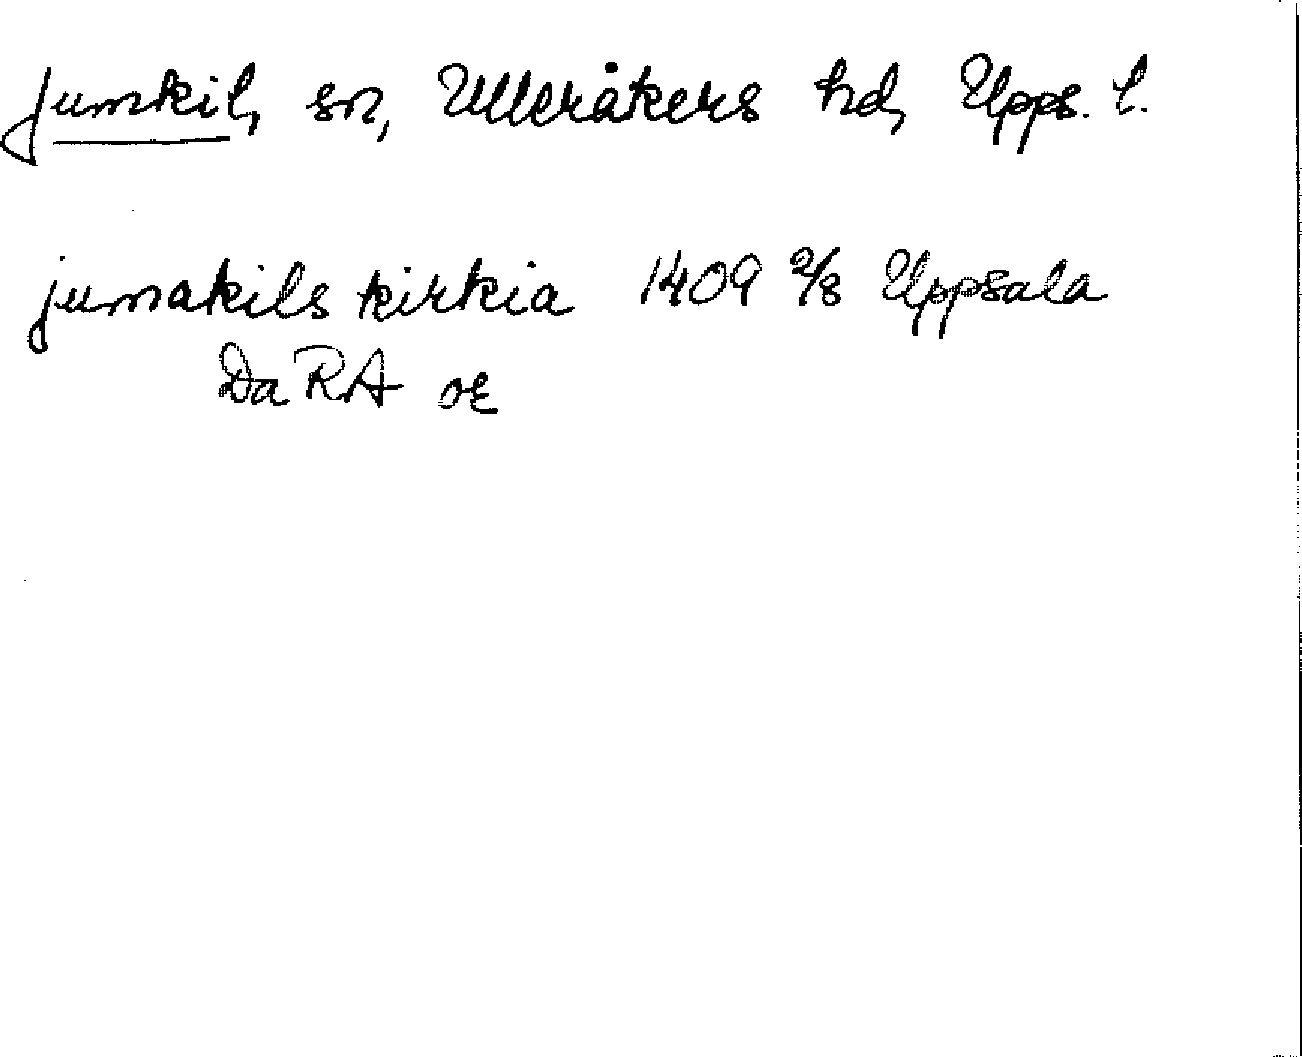 Jumkil, sn, Ulleråkers hd, Upps. l.
jumakils kirkia 1409 2/8 Uppsala
DaRA or